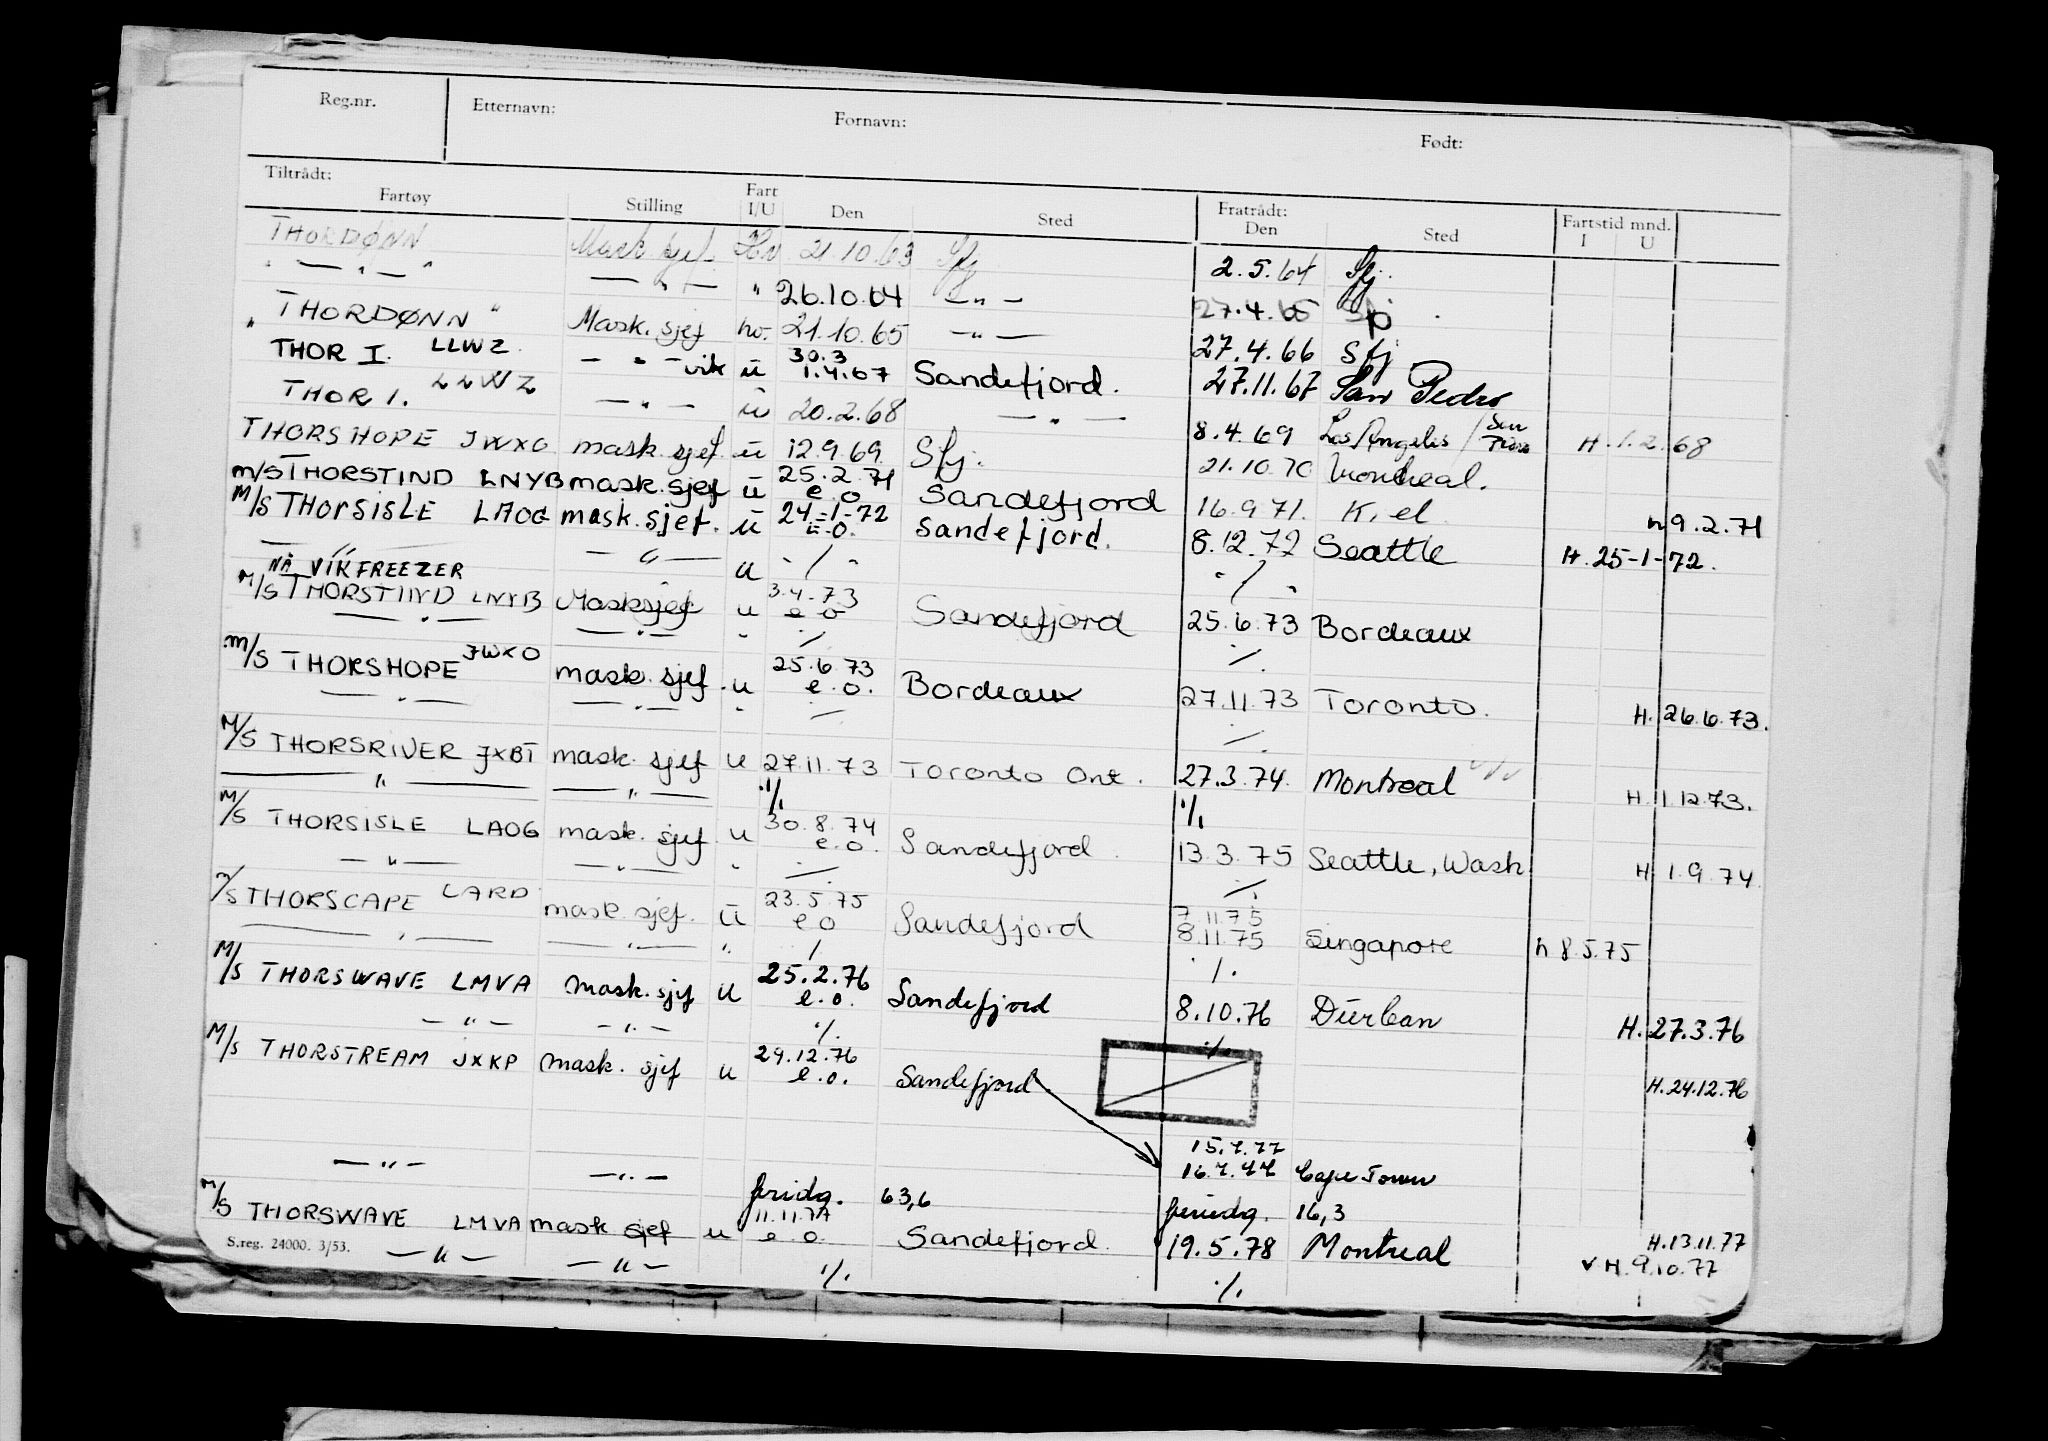 Reg.nr. Etternavn: Fornavn: Født:
Tiltrådt: Fratrådt: Fartstid mnd.
Fartøy Stilling Fart I/U Den Sted Den Sted I U
THORDØNN Mask sjef Hv 21.10.63 Sfj 2.5.64 Sfj.
" — " — " — " — " 26.10.64 — " — 27.4.65
THORDØNN " Mask. sjef hv. 21.10.65 — " — 27.4.66 Sfj
" THOR I. LLWZ — " — vik u 30.3 1.4.67 Sandefjord. 27.11.67 San Pedro
THOR I. LLWZ — " — u 20.2.68 — " — 8.4.69 Los Angeles / San Pedro H.1.2.68
THORSHOPE JWXO mask. sjef. u 12.9.69 Sfj. 21.10.70 Montreal.
m/S THORSTIND LNYB mask. sjef u 25.2.71 e.o Sandefjord 16.9.71. Kiel h 9.2.71
M/S THORSISLE LAOG mask. sjef. u 24-1-72 e.o. Sandefjord. 8.12.72 Seattle H. 25-1-72.
— " — — " — u ./. ./.
NÅ VIKFREEZER
M/S THORSTIND LNYB Masksjef u 3.4.73 e o Sandefjord 25.6.73 Bordeaux
— " — — " — " ./. ./.
m/S THORSHOPE JWXO mask. sjef. u 25.6.73 e.o. Bordeaux 27.11.73 Toronto. H. 26.6.73.
— " — — " — " ./. ./.
M/S THORSRIVER JXBT mask. sjef u 27.11.73 Toronto Ont. 27.3.74. Montreal H. 1.12.73.
— " — — " — ./. ./.
M/S THORSISLE LAOG mask. sjef u 30.8.74 e.o. Sandefjord 13.3.75 Seattle, Wash H. 1.9.74
— " — — " — " ./. ./.
M/S THORSCAPE LARD mask. sjef. u 23.5.75 e o Sandefjord 7.11.75 8.11.75 Singapore h 8.5.75
— " — — " — " ./. ./.
M/S THORSWAVE LMVA Mask. sjef u 25.2.76 e.o. Sandefjord 8.10.76 Durban H. 27.3.76
— " — — " — ./. ./.
M/S THORSTREAM JXKP Mask. sjef u 29.12.76 e.o. Sandefjord H. 24.12.76
15.7.77
— " — — " — 16.7.77 Cape Town
fridg. 63,6 feriedg. 16,3
M/S THORSWAVE LMVA mask sjef u 11.11.77 e.o. Sandefjord. 19.5.78 Montreal H. 13.11.77
S.reg. 24000. 3/53. — " — — " — ./. ./. v H. 9.10.77